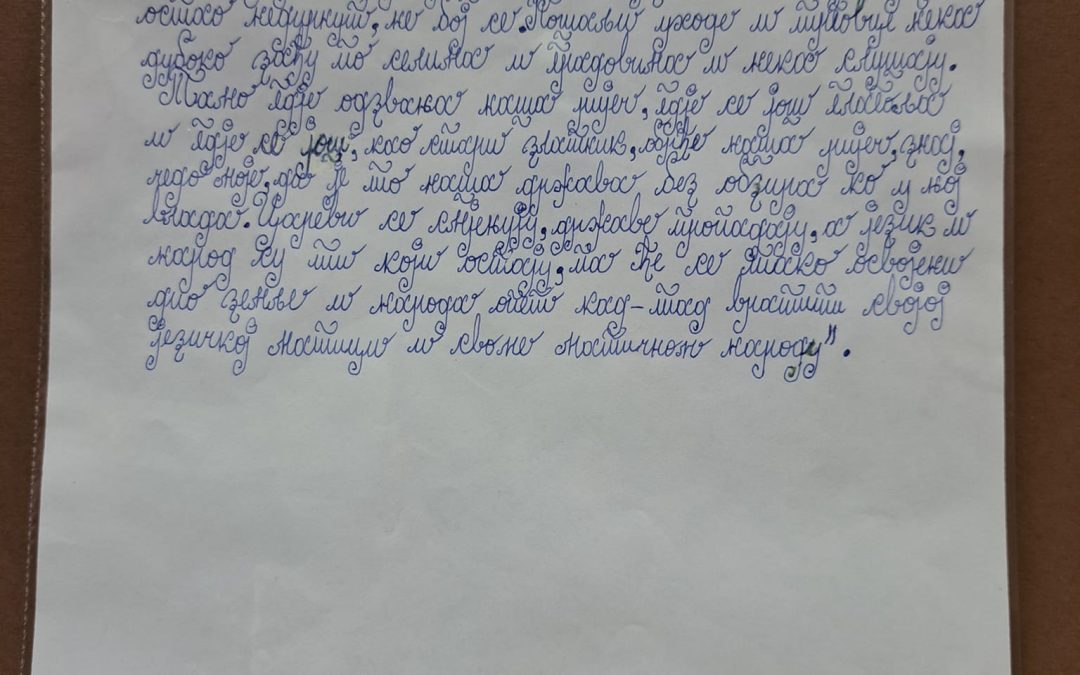 остао недирнут, не бој се. Пошаљи уходе и трговце нека
дубоко зађу по селима и градовима и нека слушају.
Тамо гдје одзвања наша ријеч, гдје се још глагоља
и гдје се још, као стари златник, обрће наша ријеч, знај,
чедо моје, да је то наша држава без обзира ко у њој
влада. Цареви се смјењују, државе пропадају, а језик и
народ су ти који остају, па ће се тако освојени
дио земље и народа опет кад-тад вратити својој
језичкој матици и своме матичном народу".